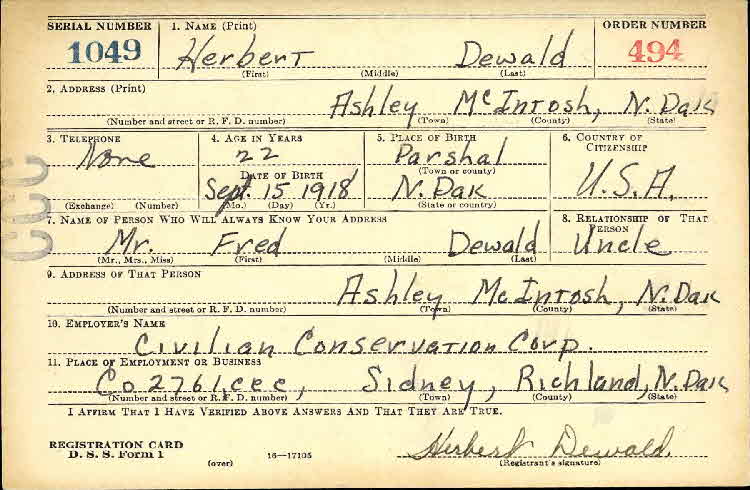 SERIAL NUMBER 1. NAME (Print) ORDER NUMBER
1049 Herbert Dewald 494
(First) (Middle) (Last)
2. ADDRESS (Print)
Ashley McIntosh, N. Dak
(Number and street or R. F. D. number) (Town) (County) (State)
3. TELEPHONE 4. AGE IN YEARS 5. PLACE OF BIRTH 6. COUNTRY OF CITIZENSHIP
None 22 Parshal
DATE OF BIRTH (Town or county)
Sept. 15 1918 N. Dak U.S.A.
(Exchange) (Number) (Mo.) (Day) (Yr.) (State or country)
CCC
7. NAME OF PERSON WHO WILL ALWAYS KNOW YOUR ADDRESS 8. RELATIONSHIP OF THAT PERSON
Mr. Fred Dewald Uncle
(Mr., Mrs., Miss) (First) (Middle) (Last)
9. ADDRESS OF THAT PERSON
Ashley McIntosh, N. Dak
(Number and street or R. F. D. number) (Town) (County) (State)
10. EMPLOYER'S NAME
Civilian Conservation Corp.
11. PLACE OF EMPLOYMENT OR BUSINESS
Co 2761, ccc, Sidney, Richland, N. Dak
(Number and street or R. F. D. number) (Town) (County) (State)
I AFFIRM THAT I HAVE VERIFIED ABOVE ANSWERS AND THAT THEY ARE TRUE.
REGISTRATION CARD
D. S. S. Form 1 (over) 16—17105 Herbert Dewald.
(Registrant's signature)